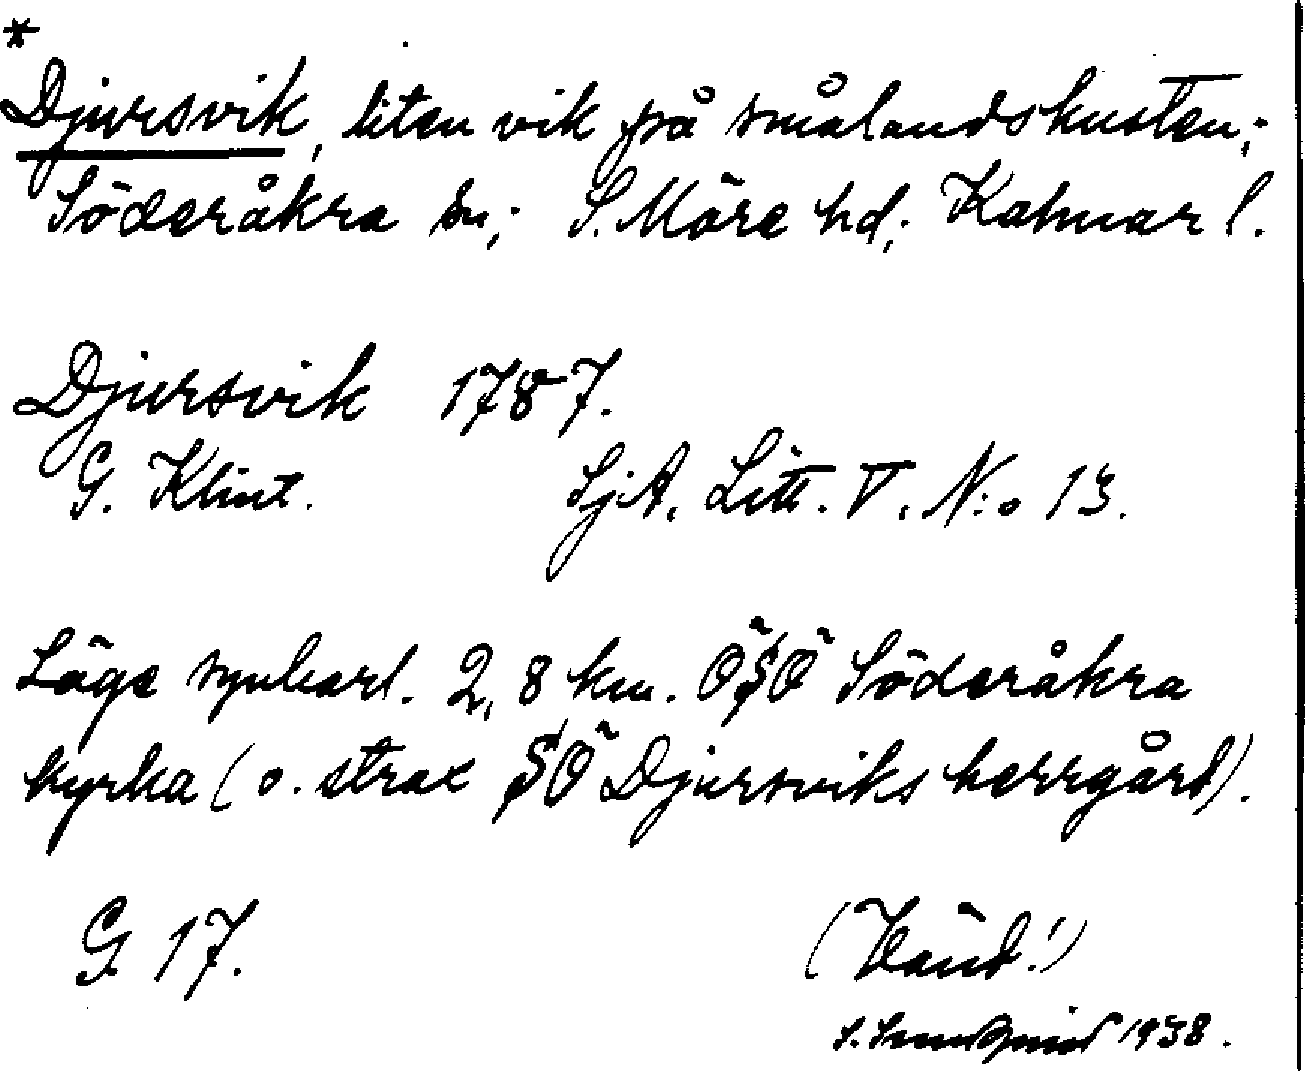 *
Djursvik, liten vik på smålandskusten;
Söderåkra sn; S. Möre hd; Kalmar l.
Djursvik 1787.
G. Klint. SjA. Litt. V. N:o 13.
Läge synbarl. 2,8 km. ÖSÖ Söderåkra
kyrka (o. strax SÖ Djursviks herrgård).
G 17. (Vänd!)
S. 1938.